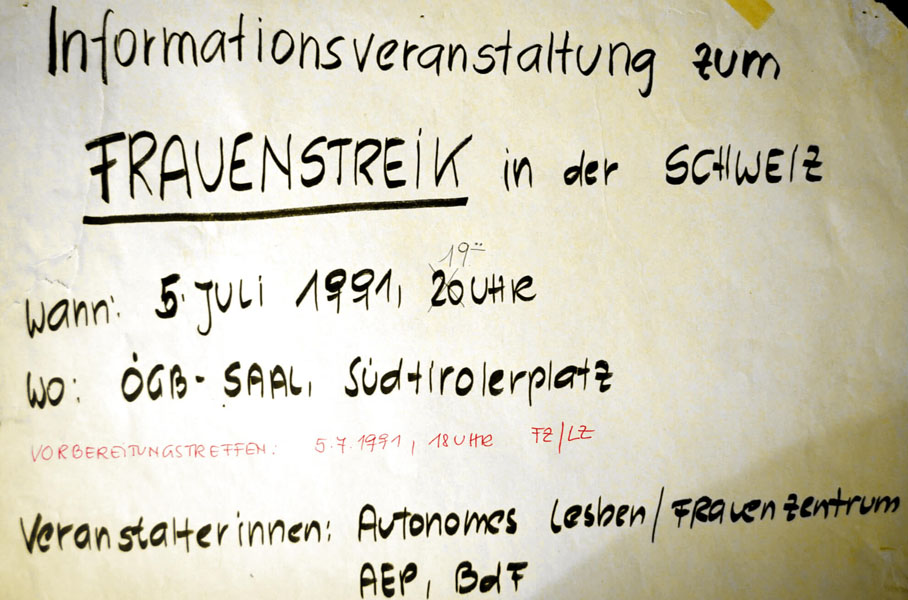 Informationsveranstaltung zum
FRAUENSTREIK in der SCHWEIZ
19°°
wann: 5. Juli 1991, 20 UHR
wo: ÖGB-SAAL, Südtirolerplatz
VORBEREITUNGSTREFFEN: 5.7.1991, 18 UHR FZ/LZ
Veranstalterinnen: Autonomes Lesben/Frauenzentrum
AEP, BdF